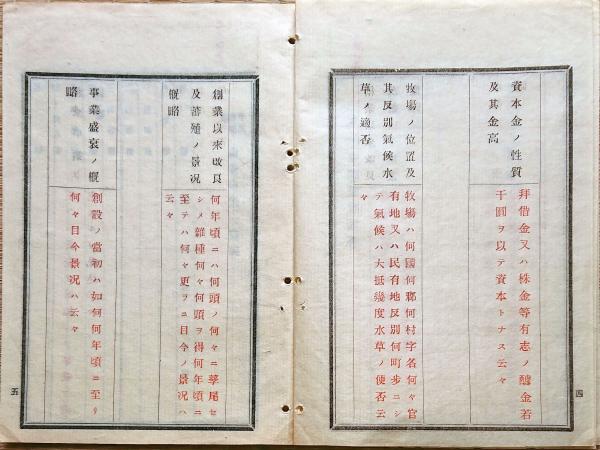 資本金ノ性質
及其金高
拜借金又ハ株金等有志ノ醵金若
干圓ヲ以テ資本トナス云々
牧場ノ位置及
其反別氣候水
草ノ適否
牧場ハ何國何郡何村字名何々官
有地又ハ民有地反別何町步ニシ
テ氣候ハ大抵幾度水草ノ便否云
々
四
創業以來改良
及蕃殖ノ景況
概略
何年頃ニハ何頭ノ何々ニ孳尾セ
シメ雜種何々何頭ヲ得何年頃ニ
至テハ何々更ラニ目今ノ景況ハ
云々
事業盛衰ノ概
略
創設ノ當初ハ如何何年頃ニ至リ
何々目今景況ハ云々
五